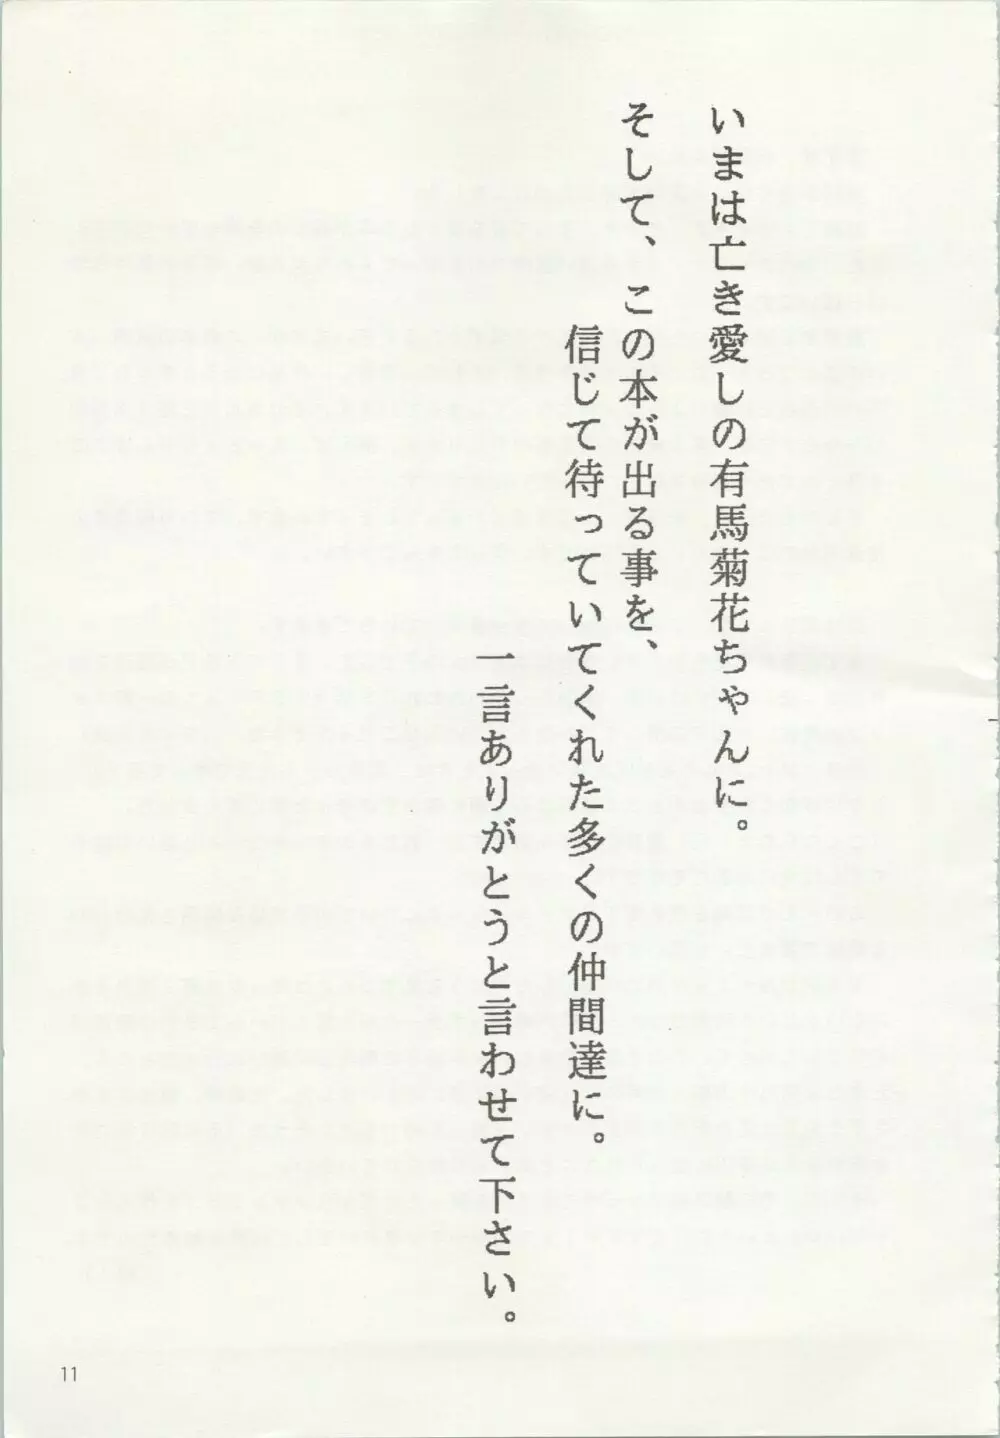 いまは亡き愛しの有馬菊花ちゃんに。
そして、この本が出る事を、
信じて待っていてくれた多くの仲間達に。
一言ありがとうと言わせて下さい。
11